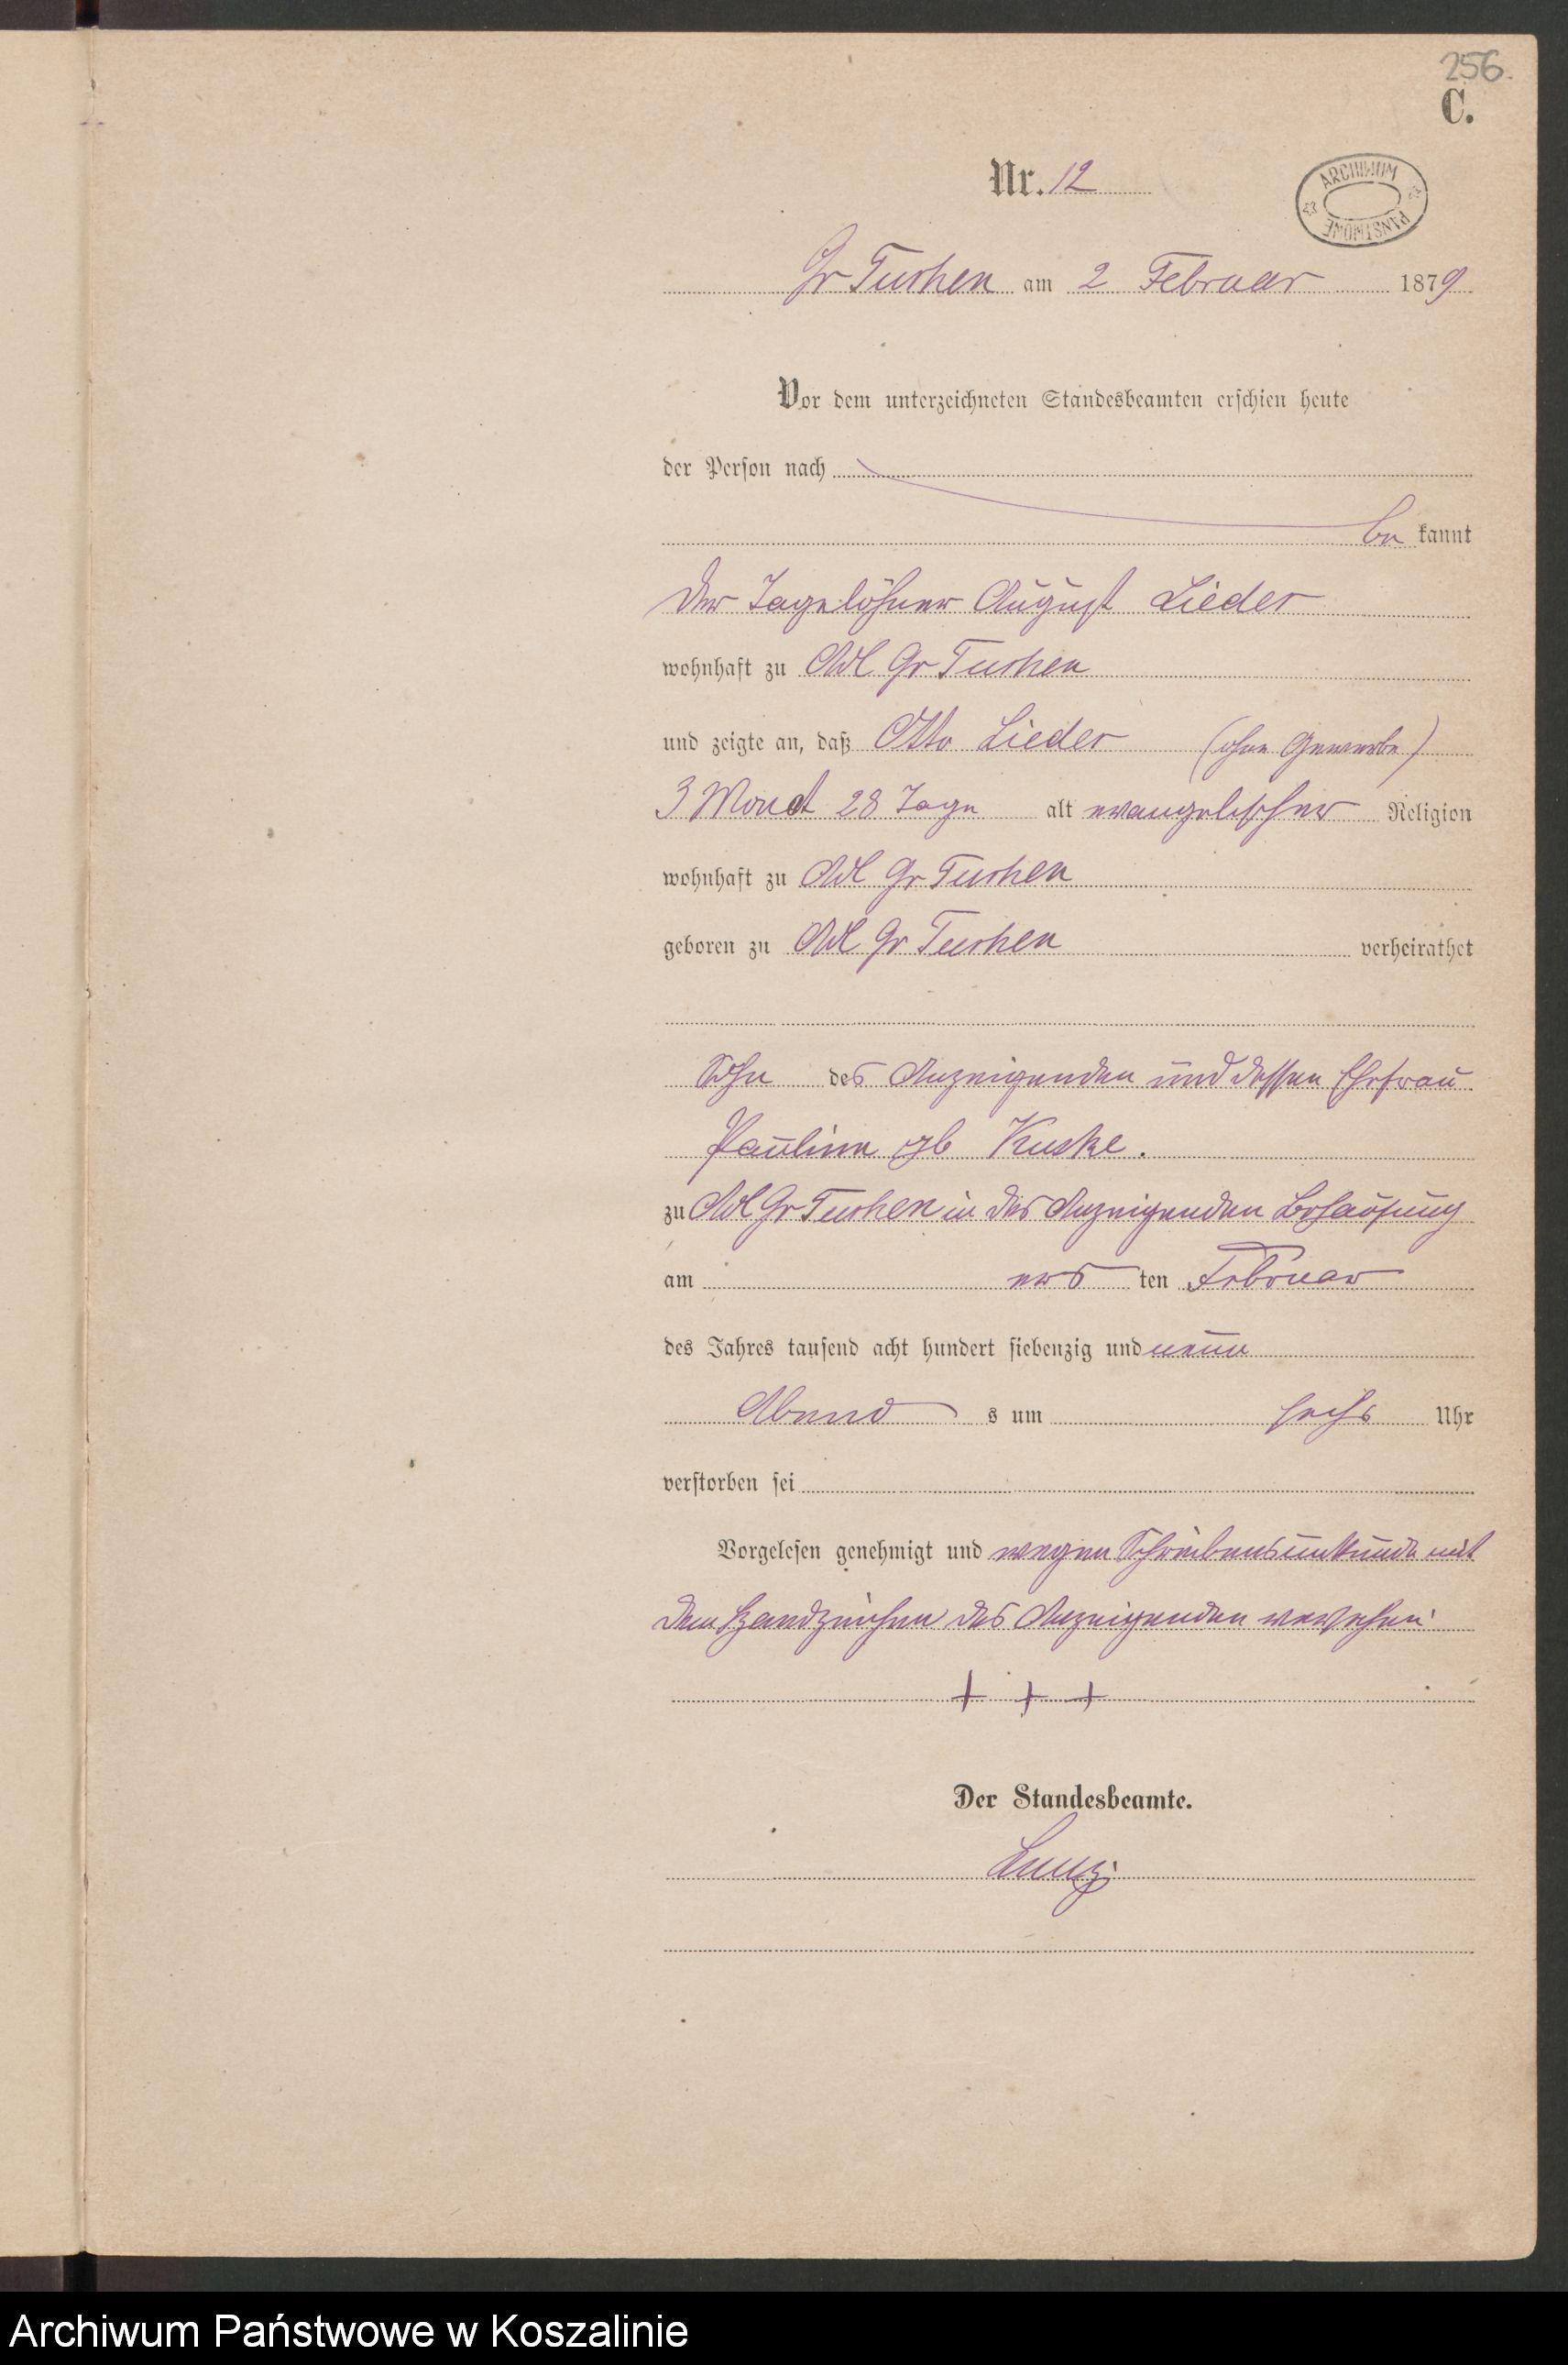 256.
C.
Nr. 12
ARCHIWUM PAŃSTWOWE
Gr Tuchen am 2 Februar 1879
Vor dem unterzeichneten Standesbeamten erschien heute
der Person nach
be kannt
der Tagelöhner August Lieder
wohnhaft zu Adl Gr Tuchen
und zeigte an, daß Otto Lieder (ohne Gewerbe)
3 Monat 28 Tage alt evangelischer Religion
wohnhaft zu Adl Gr Tuchen
geboren zu Adl Gr Tuchen verheirathet
Sohn des Anzeigenden und dessen Ehefrau
Pauline gb Kuske.
zu Adl Gr Tuchen in des Anzeigenden Behausung
am ers ten Februar
des Jahres tausend acht hundert siebenzig und neun
Abend s um sechs Uhr
verstorben sei
Vorgelesen genehmigt und wegen Schreibensunkunde mit
dem Handzeichen des Anzeigenden versehen
+ + +
Der Standesbeamte.
Archiwum Państwowe w Koszalinie